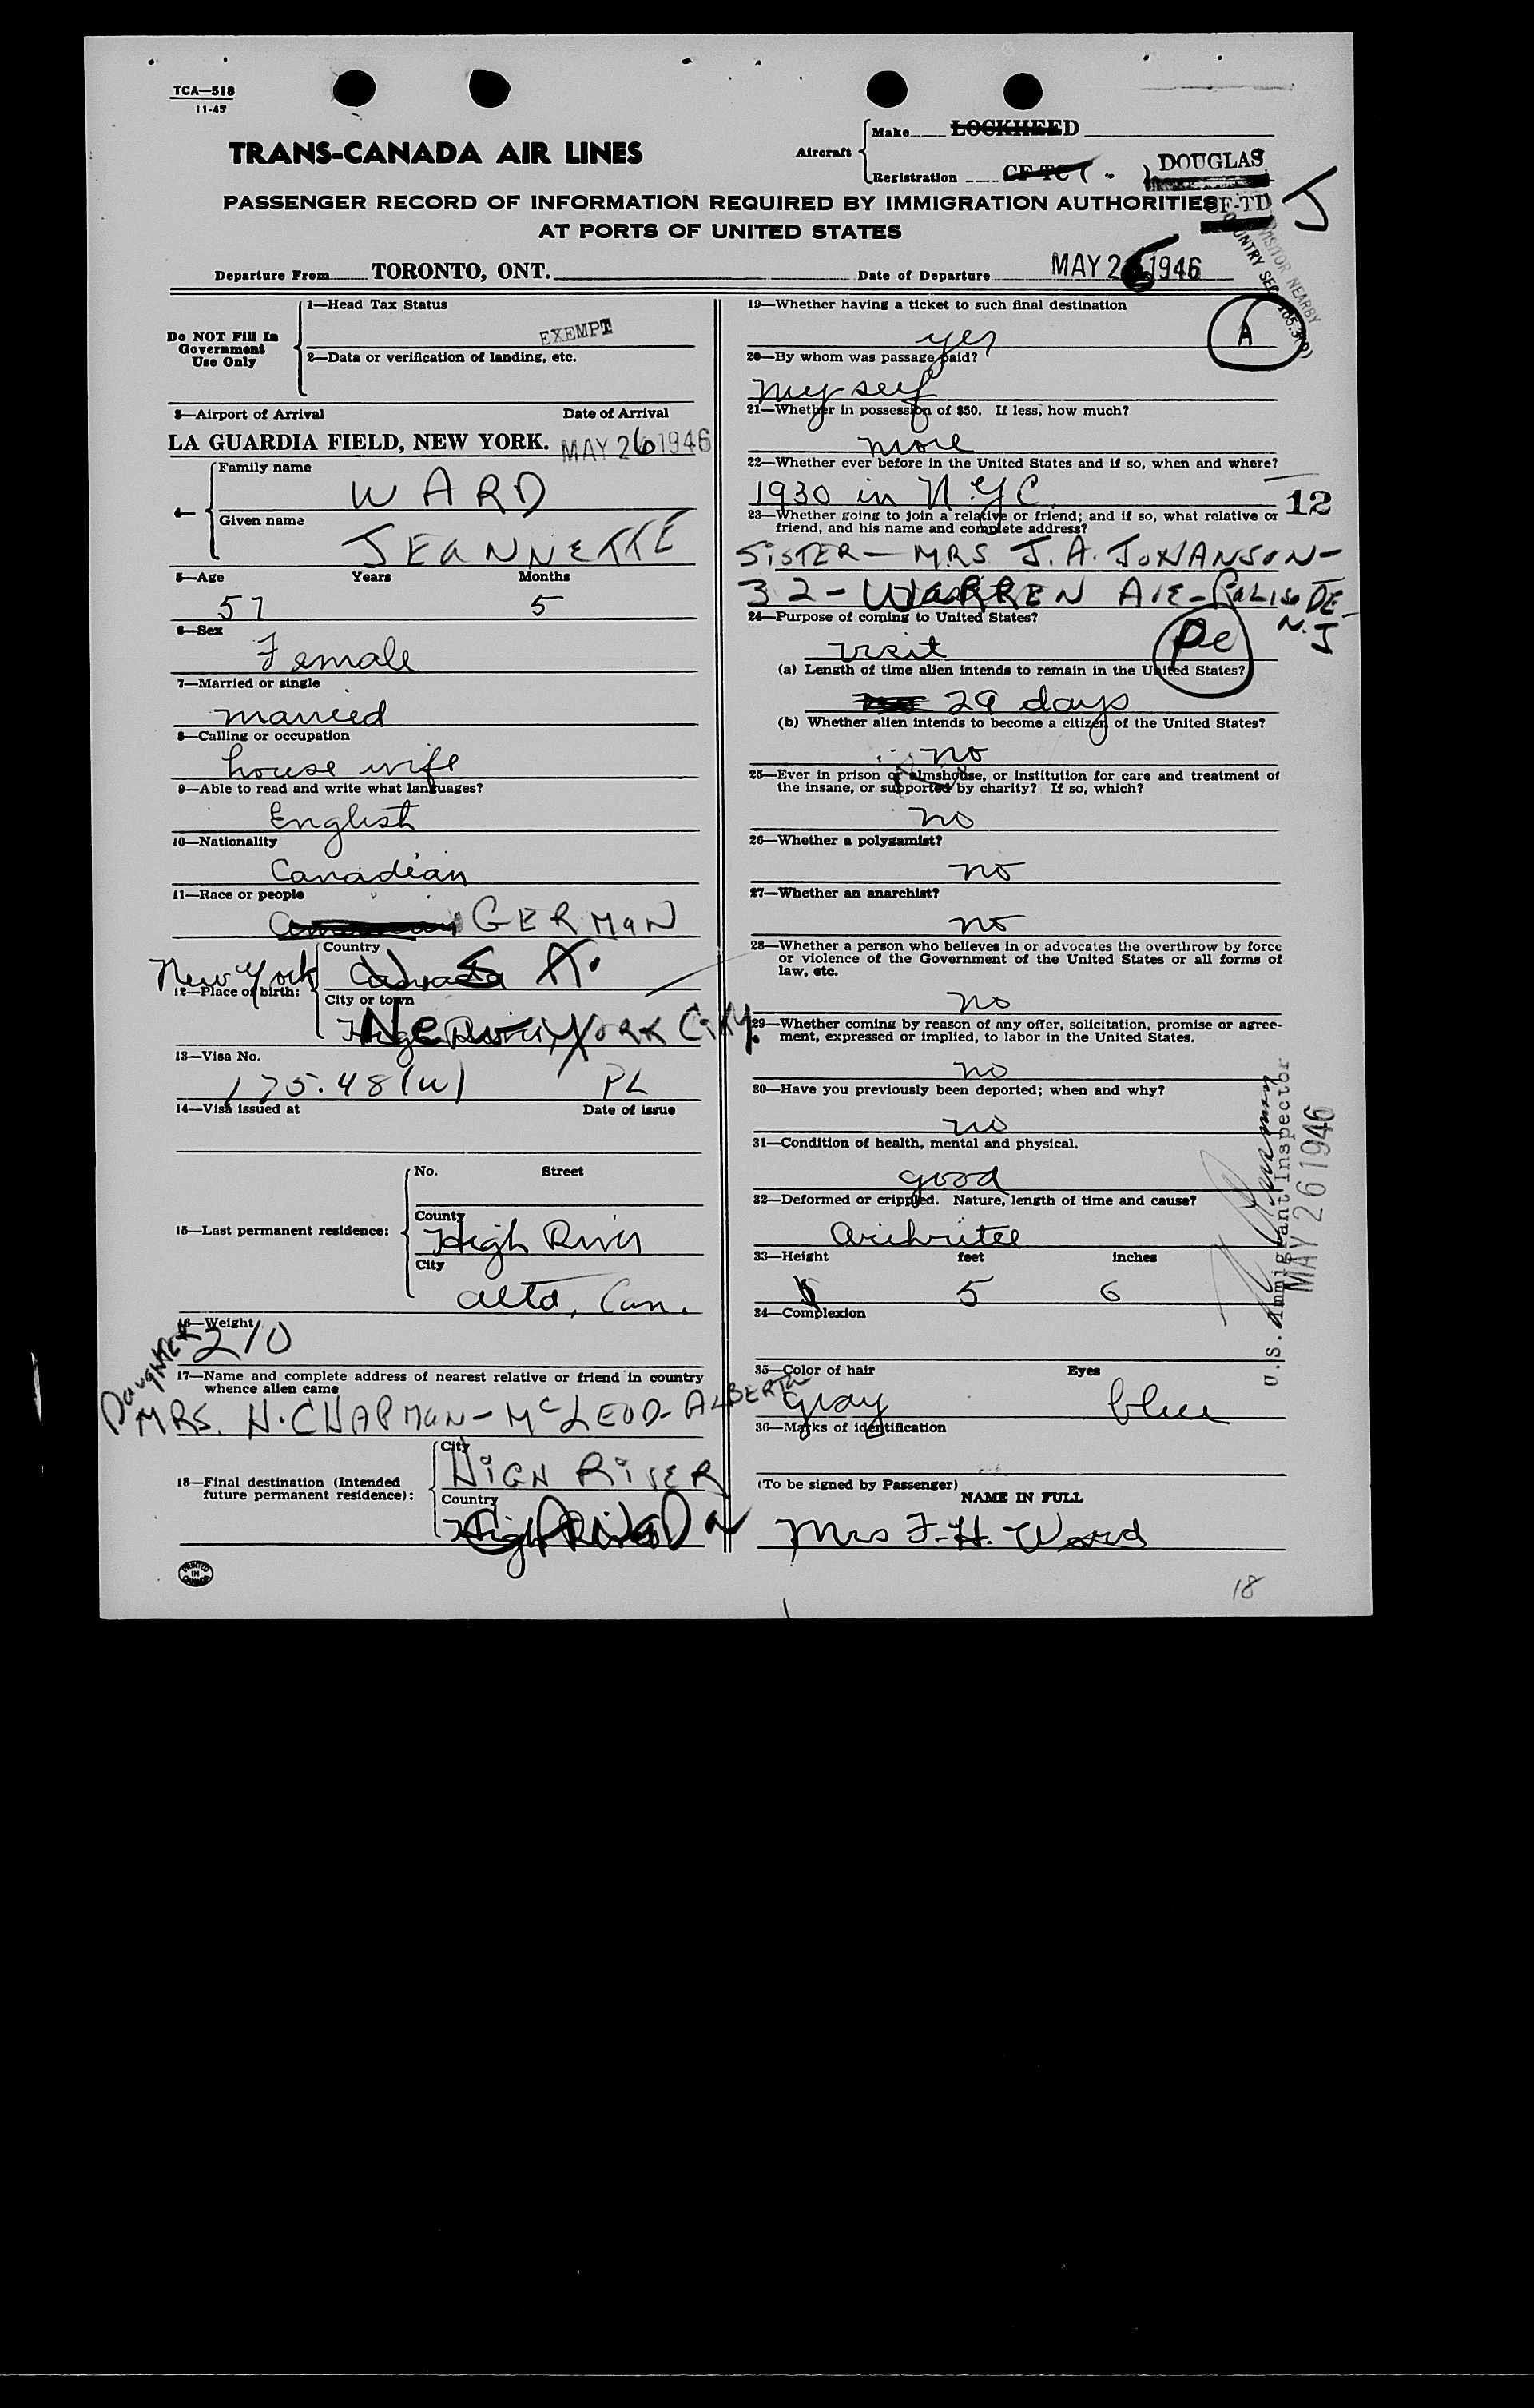 TCA—518
11-45
TRANS-CANADA AIR LINES
Aircraft
Make LOCKHEED
Registration CF-TC
DOUGLAS
CF-TD
J
PASSENGER RECORD OF INFORMATION REQUIRED BY IMMIGRATION AUTHORITIES
AT PORTS OF UNITED STATES
Departure From TORONTO, ONT.
Date of Departure MAY 26 1946
VISITOR NEARBY
COUNTRY SEC
A
Do NOT Fill In
Government
Use Only
1—Head Tax Status
EXEMPT
2—Data or verification of landing, etc.
3—Airport of Arrival Date of Arrival
LA GUARDIA FIELD, NEW YORK. MAY 26 1946
4—
Family name
WARD
Given name
JEANNETTE
5—Age Years Months
57 5
6—Sex
Female
7—Married or single
married
8—Calling or occupation
house wife
9—Able to read and write what languages?
English
10—Nationality
Canadian
11—Race or people
GERMAN
New York
12—Place of birth:
Country
City or town
New York City.
13—Visa No.
175.48(w) PL
14—Visa issued at Date of issue
15—Last permanent residence:
No. Street
County
High River
City
Alta, Can.
16—Weight
210
17—Name and complete address of nearest relative or friend in country
whence alien came
DAUGHTER
MRS. H. CHAPMAN - McLEOD - ALBERTA
18—Final destination (Intended
future permanent residence):
City
HIGH RIVER
Country
PRINTED
IN
CANADA
19—Whether having a ticket to such final destination
yes
20—By whom was passage paid?
my self
21—Whether in possession of $50. If less, how much?
more
22—Whether ever before in the United States and if so, when and where?
1930 in N.Y.C.
12
23—Whether going to join a relative or friend; and if so, what relative or
friend, and his name and complete address?
SISTER - MRS J. A. JOHANSON -
32 - WARREN AVE - PALISADE -
N.J
24—Purpose of coming to United States?
visit
(a) Length of time alien intends to remain in the United States?
29 days
(b) Whether alien intends to become a citizen of the United States?
no
25—Ever in prison or almshouse, or institution for care and treatment of
the insane, or supported by charity? If so, which?
no
26—Whether a polygamist?
no
27—Whether an anarchist?
no
28—Whether a person who believes in or advocates the overthrow by force
or violence of the Government of the United States or all forms of
law, etc.
no
29—Whether coming by reason of any offer, solicitation, promise or agree-
ment, expressed or implied, to labor in the United States.
no
30—Have you previously been deported; when and why?
no
31—Condition of health, mental and physical.
good
32—Deformed or crippled. Nature, length of time and cause?
33—Height feet inches
5 6
34—Complexion
35—Color of hair Eyes
gray blue
36—Marks of identification
(To be signed by Passenger)
NAME IN FULL
Mrs F. H. Ward
U.S. Immigrant Inspector
MAY 26 1946
18